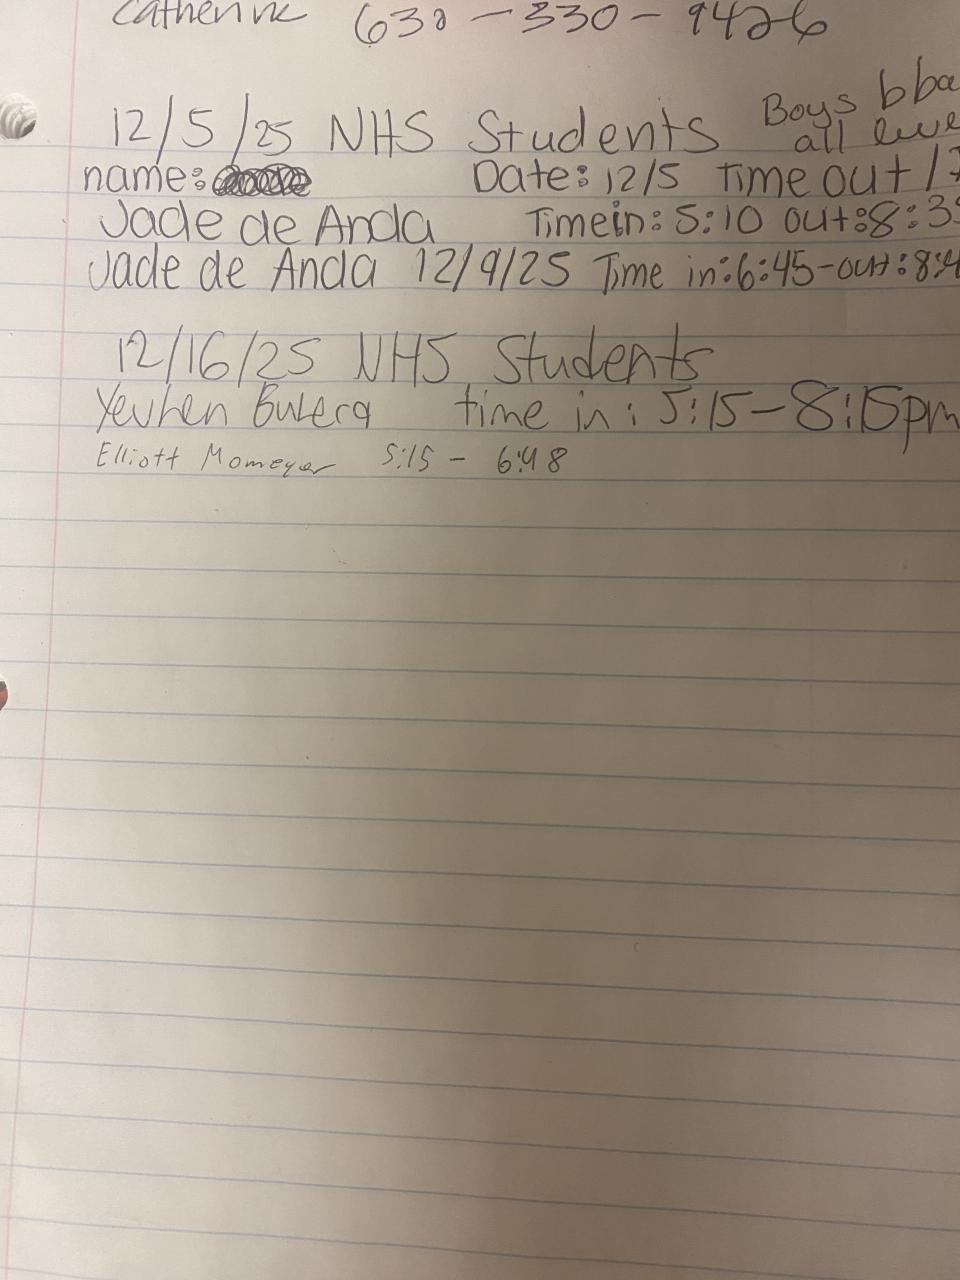 Catherine 630-330-9426
12/5/25 NHS Students Boys bba
all leve
name: Date: 12/5 Time out /
Jade de Anda Time in: 5:10 out: 8:3
Jade de Anda 12/9/25 Time in: 6:45-out: 8:4
12/16/25 NHS Students
Yevhen time in: 5:15-8:15pm
Elliott Momeyer 5:15 - 6:48